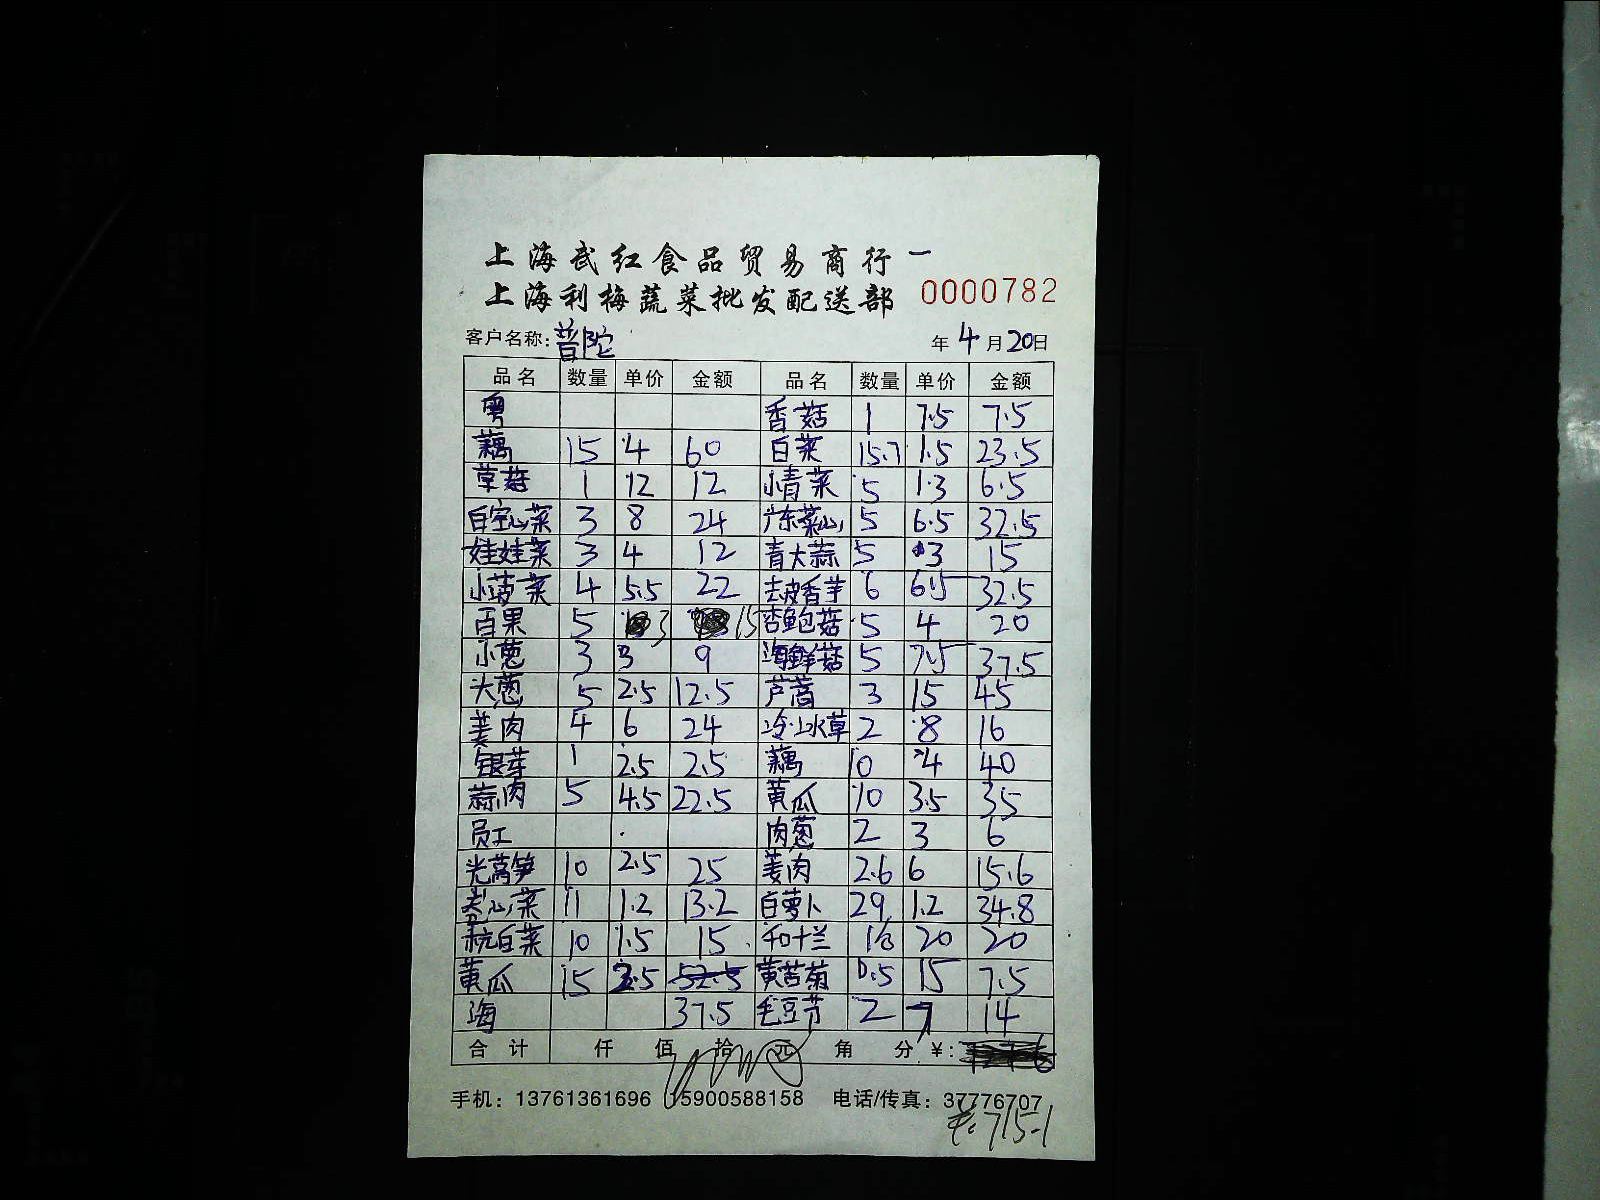 上海武红食品贸易商行一
上海利梅蔬菜批发配送部 0000782
客户名称: 普陀 年 4 月 20 日
品名 数量 单价 金额 品名 数量 单价 金额
粤 香菇 1 7.5 7.5
藕 15 4 60 白菜 15.7 1.5 23.5
草菇 1 12 12 小青菜 5 1.3 6.5
白空心菜 3 8 24 广东菜心 5 6.5 32.5
娃娃菜 3 4 12 青大蒜 5 3 15
小菠菜 4 5.5 22 去皮香芋 6 6.5 32.5
百果 5 3 15 杏鲍菇 5 4 20
小葱 3 3 9 海鲜菇 5 7.5 37.5
大葱 5 2.5 12.5 芦蒿 3 15 45
姜肉 4 6 24 冷水草 2 8 16
银芽 1 2.5 2.5 藕 10 4 40
蒜肉 5 4.5 22.5 黄瓜 10 3.5 35
员工 肉葱 2 3 6
光莴笋 10 2.5 25 姜肉 2.6 6 15.6
卷心菜 11 1.2 13.2 白萝卜 29 1.2 34.8
杭白菜 10 1.5 15 20 20
黄瓜 15 2.5 52.5 黄苦菊 0.5 15 7.5
海 37.5 毛豆节 2 7 14
合计 仟 佰 拾 元 角 分 ¥:
手机: 13761361696 15900588158 电话/传真: 37776707
715.1